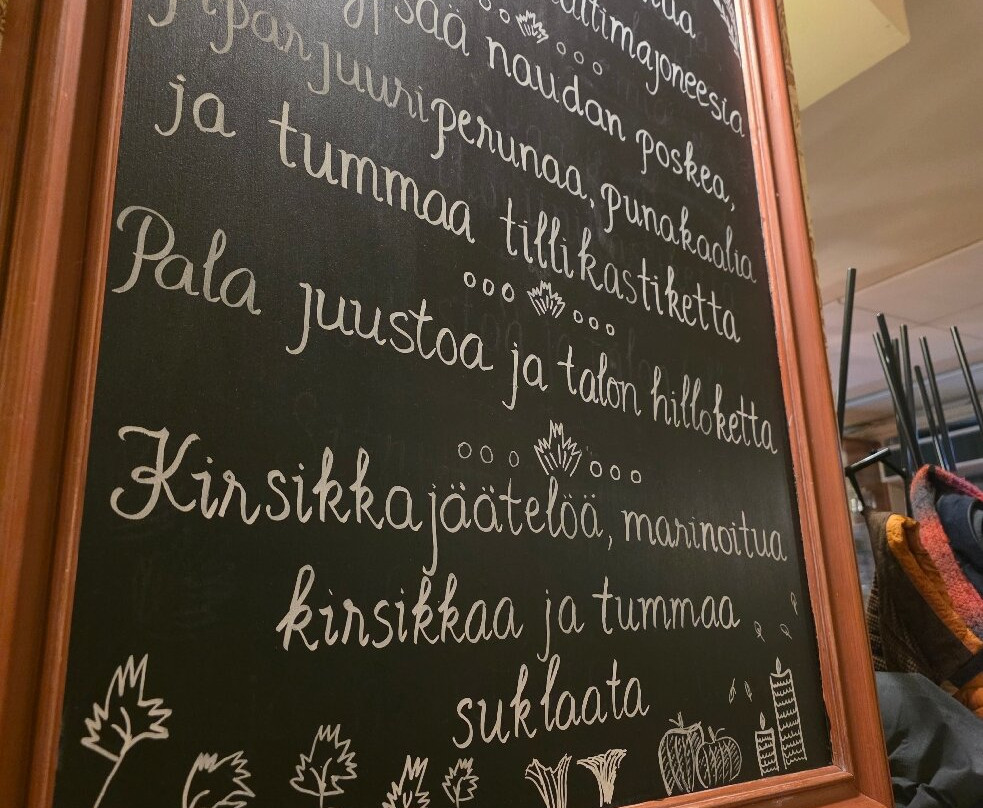 naudan poskea,
Piparjuuriperunaa, punakaalia
ja tummaa tillikastiketta
Pala juustoa ja talon hilloketta
Kirsikkajäätelöä, marinoitua
kirsikkaa ja tummaa
suklaata